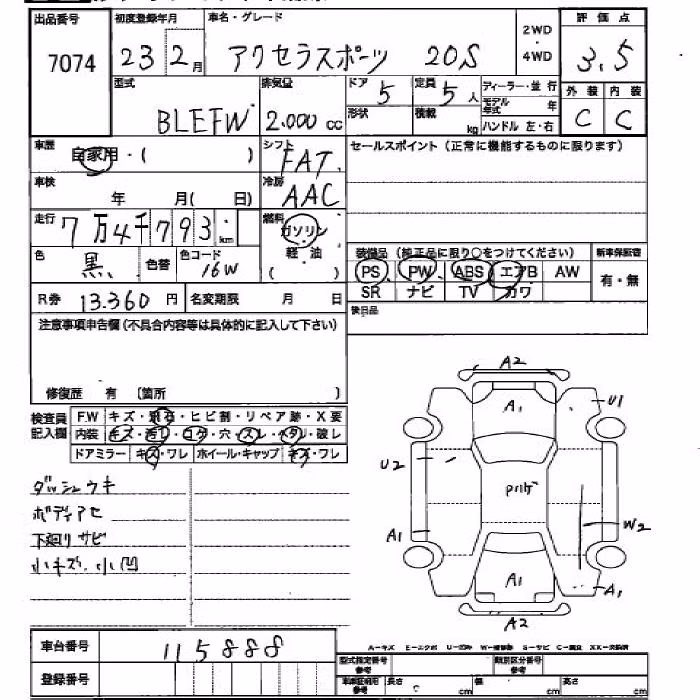 出品番号 初度登録年月 車名・グレード 2WD・4WD 評価点
7074 23 2月 アクセラスポーツ 20S 3.5
型式 排気量 ドア 5 定員 5人 ディーラー・並行 外装 内装
BLEFW 2.000cc 形状 積載 kg モデル年式 年 C C
ハンドル 左・右
車歴 自家用・( ) シフト FAT セールスポイント(正常に機能するものに限ります)
車検 年 月( 日) 冷房 AAC
走行 7万4千793km 燃料 ガソリン
軽油
( )
色 黒 色替 色コード 16W
装備品(純正品に限り○をつけてください) 新車保証書
PS PW ABS エアB AW 有・無
SR ナビ TV カワ
R券 13.360円 名変期限 月 日 後日品
注意事項申告欄(不具合内容等は具体的に記入して下さい)
修復歴 有 〔箇所 〕
検査員記入欄 FW キズ・飛石・ヒビ割・リペア跡・X要
内装 キズ・汚レ・コゲ・穴・スレ・ヘタリ・破レ
ドアミラー キズ・ワレ ホイール・キャップ キズ・ワレ
ダッシュウキ
ボディアセ
下廻りサビ
小キズ、小凹
A2
A1 U1
U2
A1 W2
A1 A1
A2
車台番号 115888
登録番号
型式指定番号 参考 類別区分番号
車庫証明用 参考 長さ cm 幅 cm 高さ cm